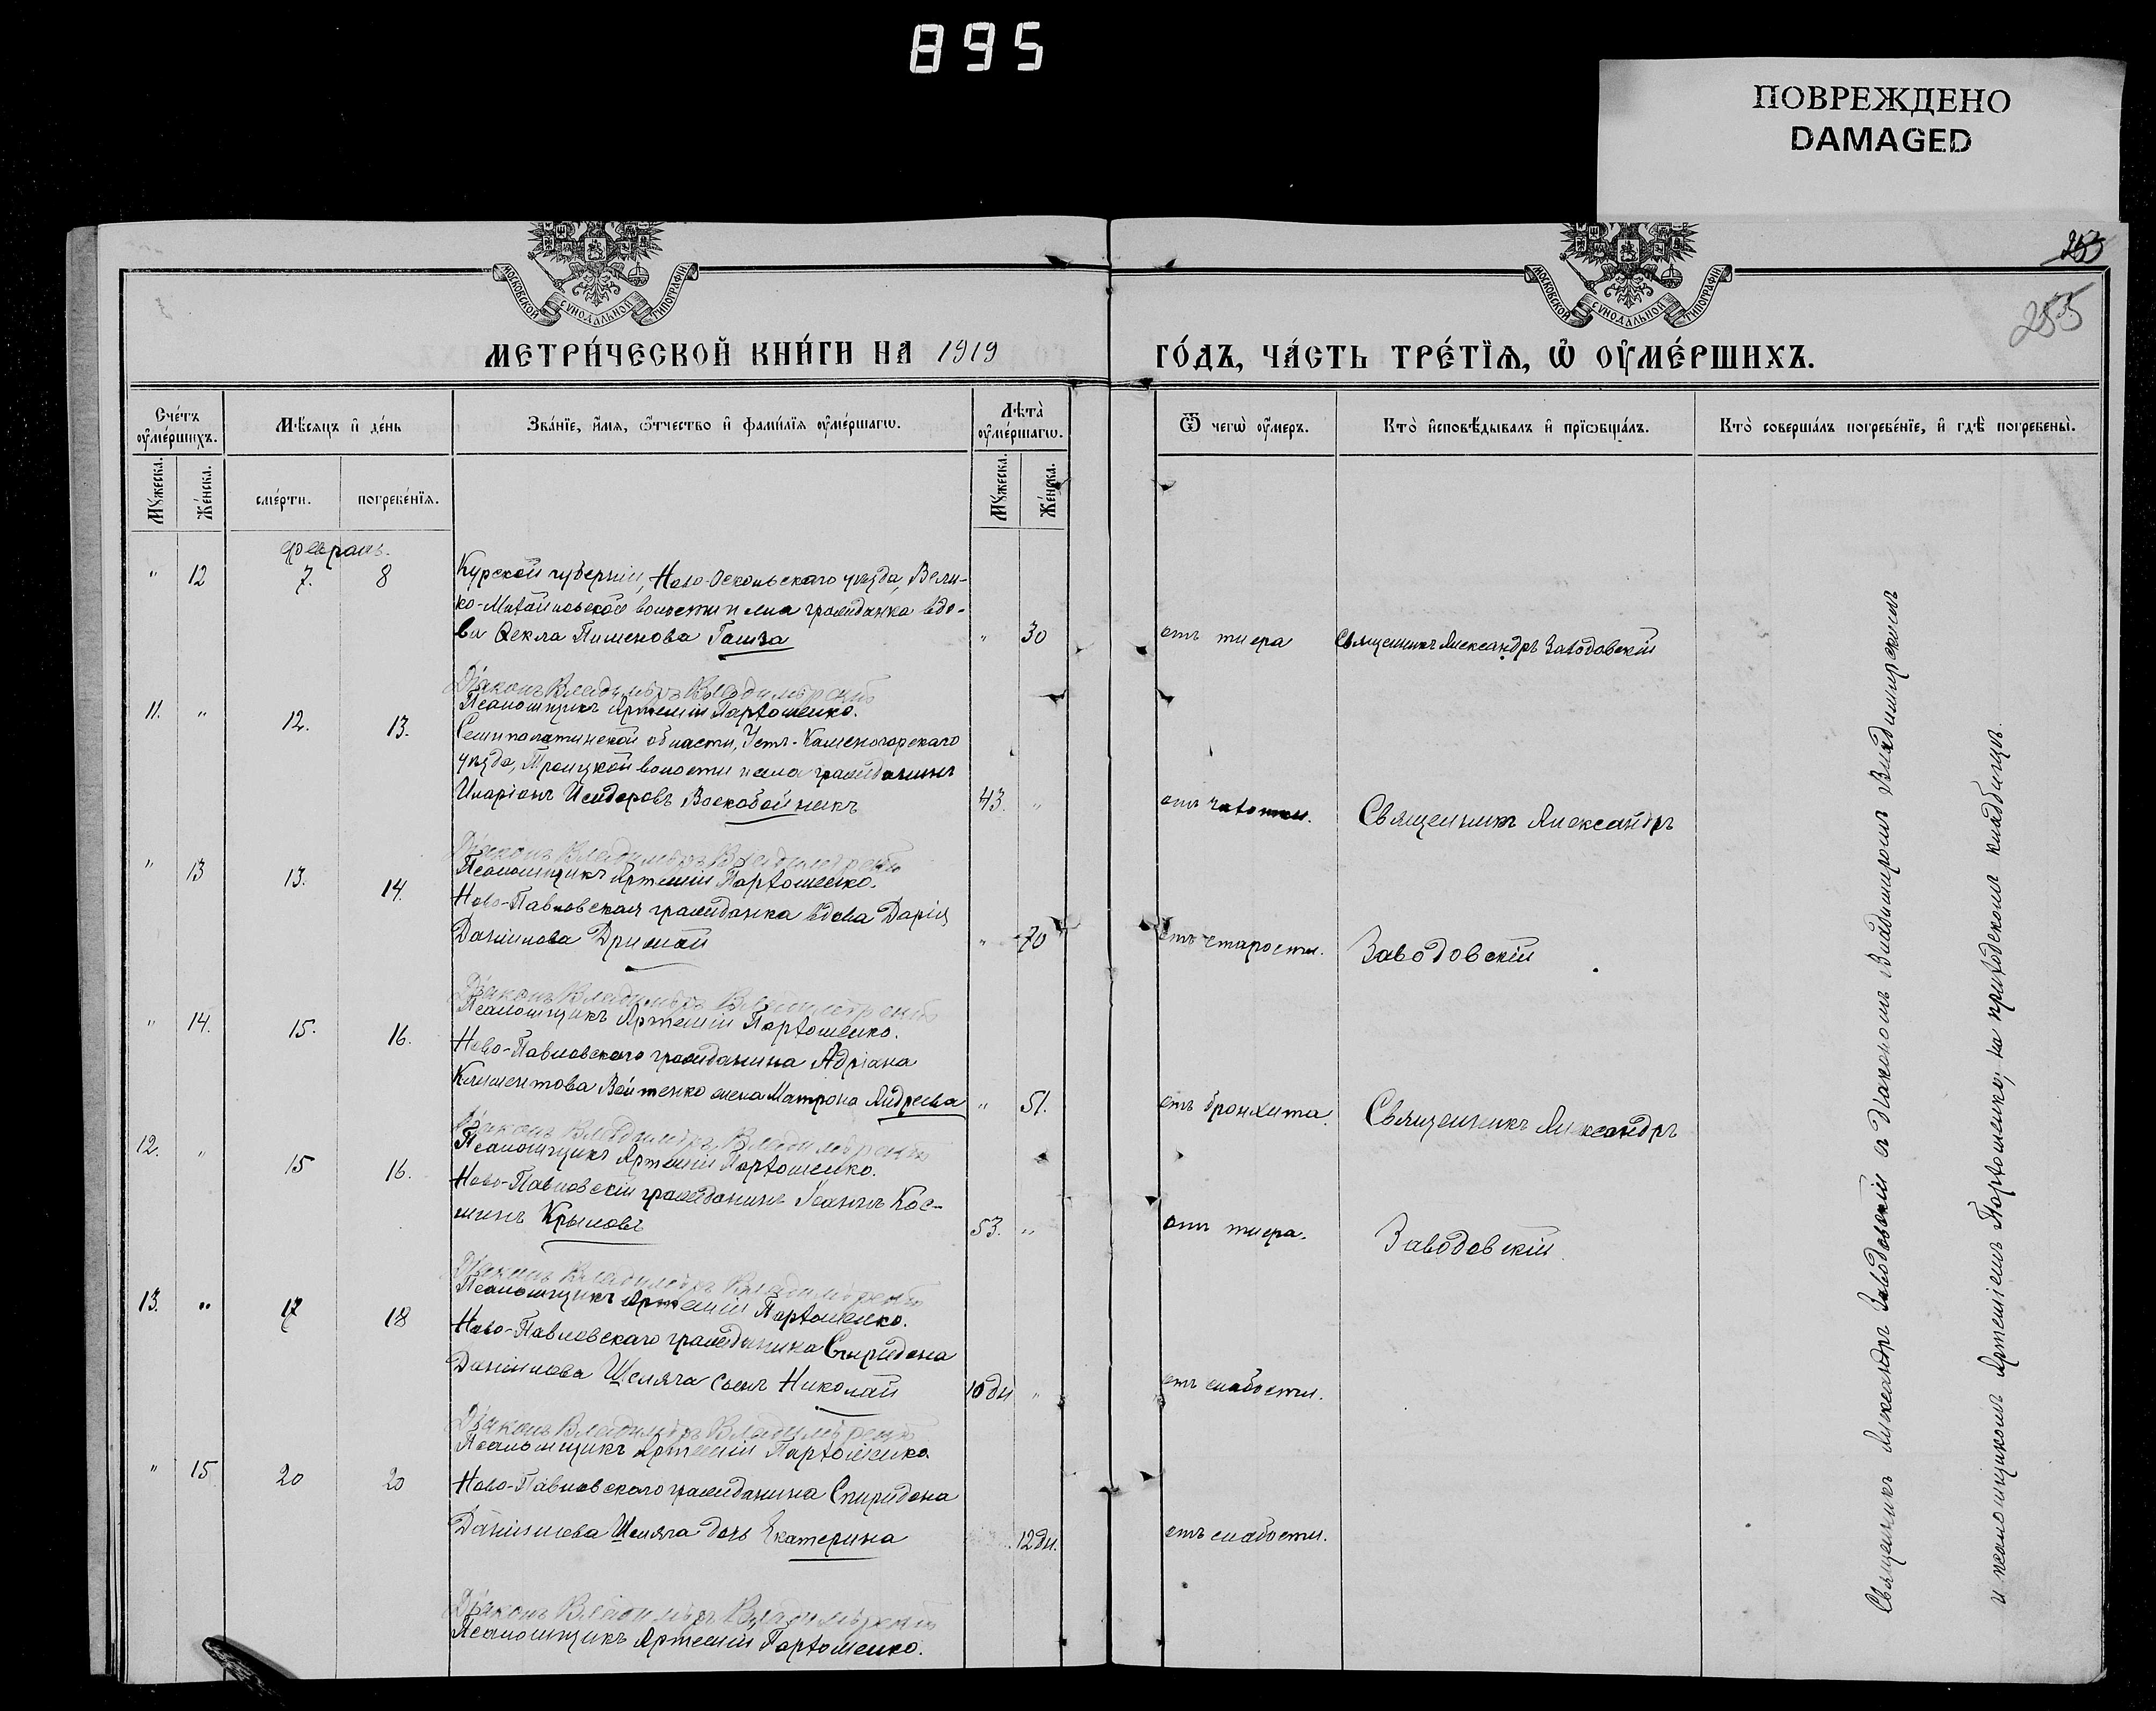 895
ПОВРЕЖДЕНО
DAMAGED
МОСКОВСКОЙ СѴНОДАЛЬНОЙ ТИПОГРАФІИ
МОСКОВСКОЙ СѴНОДАЛЬНОЙ ТИПОГРАФІИ
253
255
МЕТРИ́ЧЕСКОЙ КНИ́ГИ НА 1919
ГО́ДЪ, ЧА́СТЬ ТРЕ́ТЇѦ, Ѡ҆ ОУ҆МЕ́РШИХЪ.
Сче́тъ оу҆ме́ршихъ.
Мѣ́сѧцъ и҆ де́нь
Зва́нїе, и҆́мѧ, ѻ҆́тчество и҆ фами́лїѧ оу҆ме́ршагѡ.
Лѣ́та оу҆ме́ршагѡ.
Ѿ чегѡ̀ оу҆́меръ.
Кто̀ и҆сповѣ́дывалъ и҆ прїѡбща́лъ.
Кто̀ соверша́лъ погребе́нїе, и҆ гдѣ̀ погребены̀.
Мꙋ́жеска. Же́нска.
сме́рти. погребе́нїѧ.
Мꙋ́жеска. Же́нска.
Февраль.
" 12 7. 8 Курской губерніи, Ново-Оскольскаго уѣзда, Вели-
ко-Михайловской волости и села гражданка вдо-
ва Ѳекла Пименова " 30 отъ тифа Священникъ Александръ Заводовскій
Діаконъ Владиміръ Владимірскій
Псаломщикъ Артемій Пархоменко.
11. " 12. 13. Семипалатинской области, Усть-Каменогорскаго
уѣзда, Троицкой волости и села гражданинъ
Иларіонъ Исидоровъ Воскобойникъ 43. " отъ чахотки. Священникъ Александръ
Діаконъ Владиміръ Владимірскій
Псаломщикъ Артемій Пархоменко.
" 13 13. 14. Ново-Павловская гражданка вдова Дарія
Даніилова " 70 отъ старости. Заводовскій
Діаконъ Владиміръ Владимірскій
Псаломщикъ Артемій Пархоменко.
" 14. 15. 16. Ново-Павловскаго гражданина Адріана
Климентова Войтенко жена Матрона Андреева " 51. отъ бронхита. Священникъ Александръ
Діаконъ Владиміръ Владимірскій
Псаломщикъ Артемій Пархоменко.
12. " 15 16. Ново-Павловскій гражданинъ Іоаннъ Кос-
минъ Крыловъ 53. " отъ тифа. Заводовскій
Діаконъ Владиміръ Владимірскій
Псаломщикъ Артемій Пархоменко.
13. " 17 18 Ново-Павловскаго гражданина Спиридона
Даніилова сынъ Николай 10 дн " отъ слабости.
Діаконъ Владиміръ Владимірскій
Псаломщикъ Артемій Пархоменко
" 15 20 20 Ново-Павловскаго гражданина Спиридона
Даніилова дочь Екатерина 12 дн. отъ слабости.
Діаконъ Владиміръ Владимірскій
Псаломщикъ Артемій Пархоменко.
Священникъ Александръ Заводовскій съ Діакономъ Владиміромъ Владимірскимъ
и псаломщикомъ Артеміемъ Пархоменко, на приходскомъ кладбищѣ.